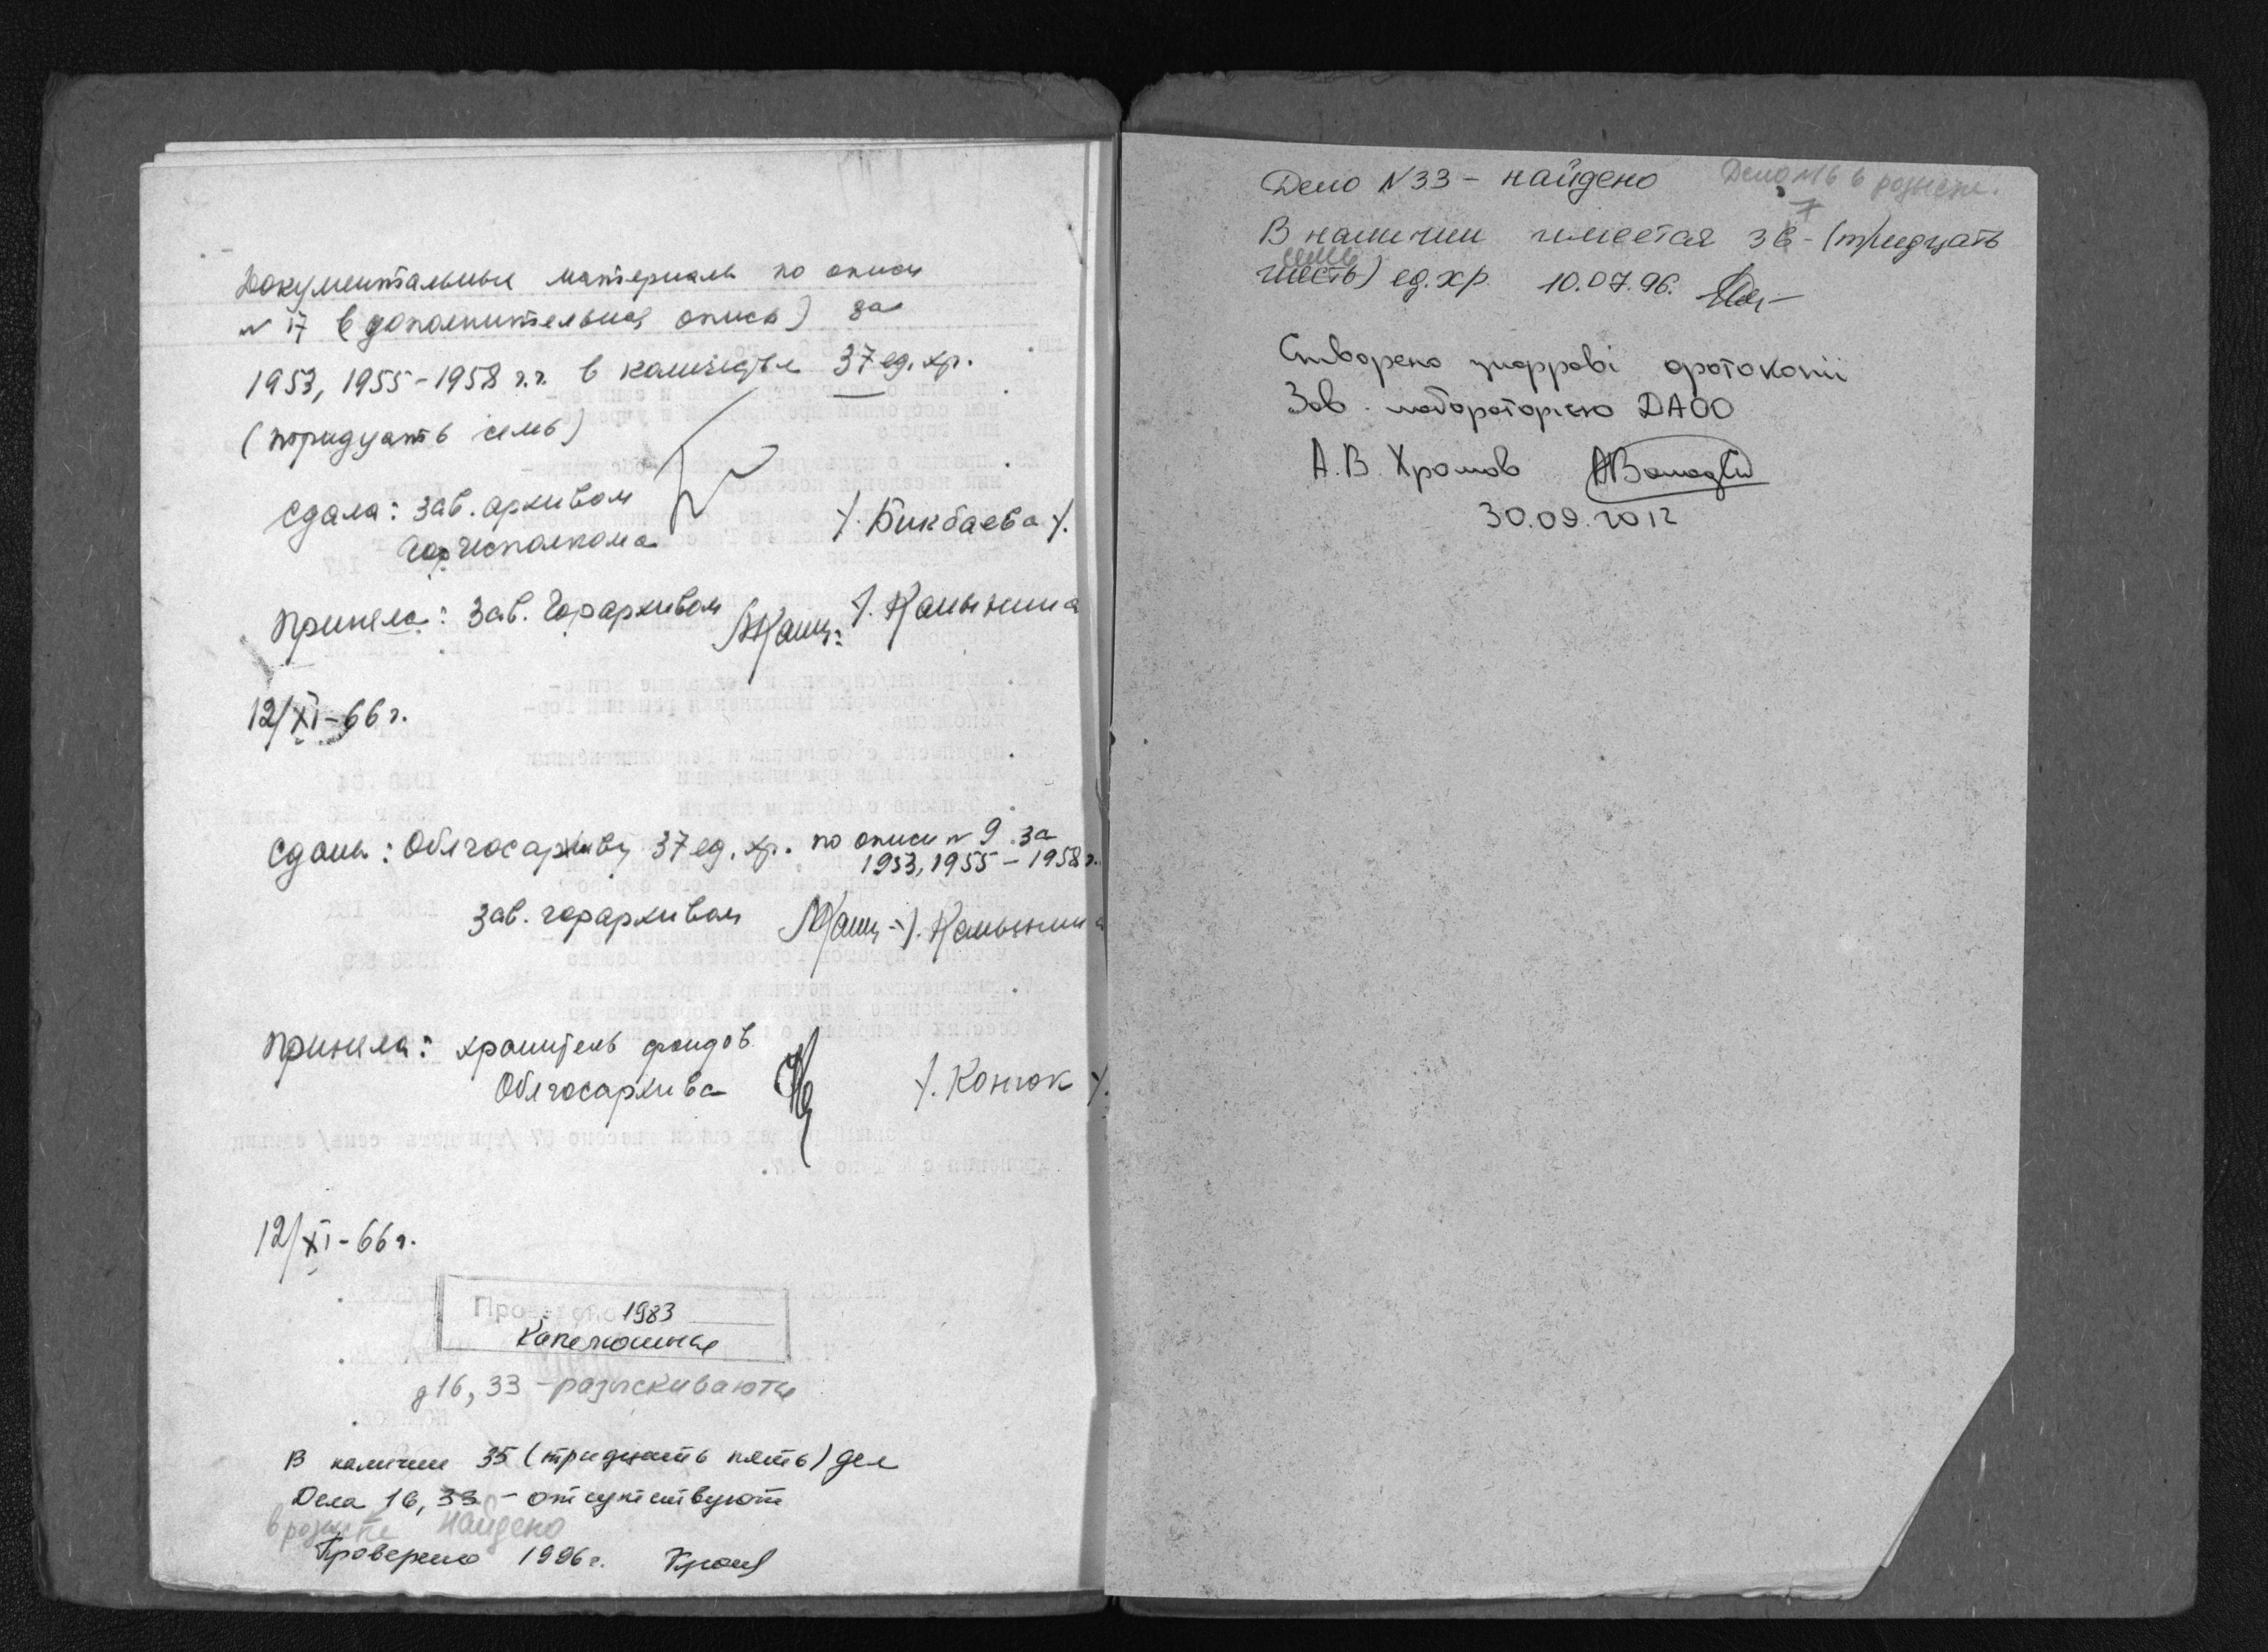 Документальные материалы по описи
№ 17 (дополнительная опись) за
1953, 1955-1958 г.г. в количестве 37 ед. хр.
(тридцать семь)
Сдала: зав. архивом
Горисполкома /. Бикбаева /.
Приняла: Зав. Горархивом /. Калынина
12/XI-66 г.
Сданы: Облгосархиву 37 ед. хр. по описи № 9 за
1953, 1955-1958 г.
Зав. горархивом /. Калынина
Приняла: хранитель фондов
Облгосархива /. Конюк /.
12/XI-66 г.
Проверено 1983
д 16, 33 - разыскиваются
В наличии 35 (тридцать пять) дел
Дела 16, 33 - отсутствуют
в розыске найдено
Проверено 1996 г.
Дело N 33 - найдено Дело №16 в розыске.
7
В наличии имеется 36 - (тридцать
семь
шесть) ед. хр. 10.07.96.
Створено цифрові фотокопії
Зав. лабораторією ДАОО
А.В. Хромов
30.09.2012